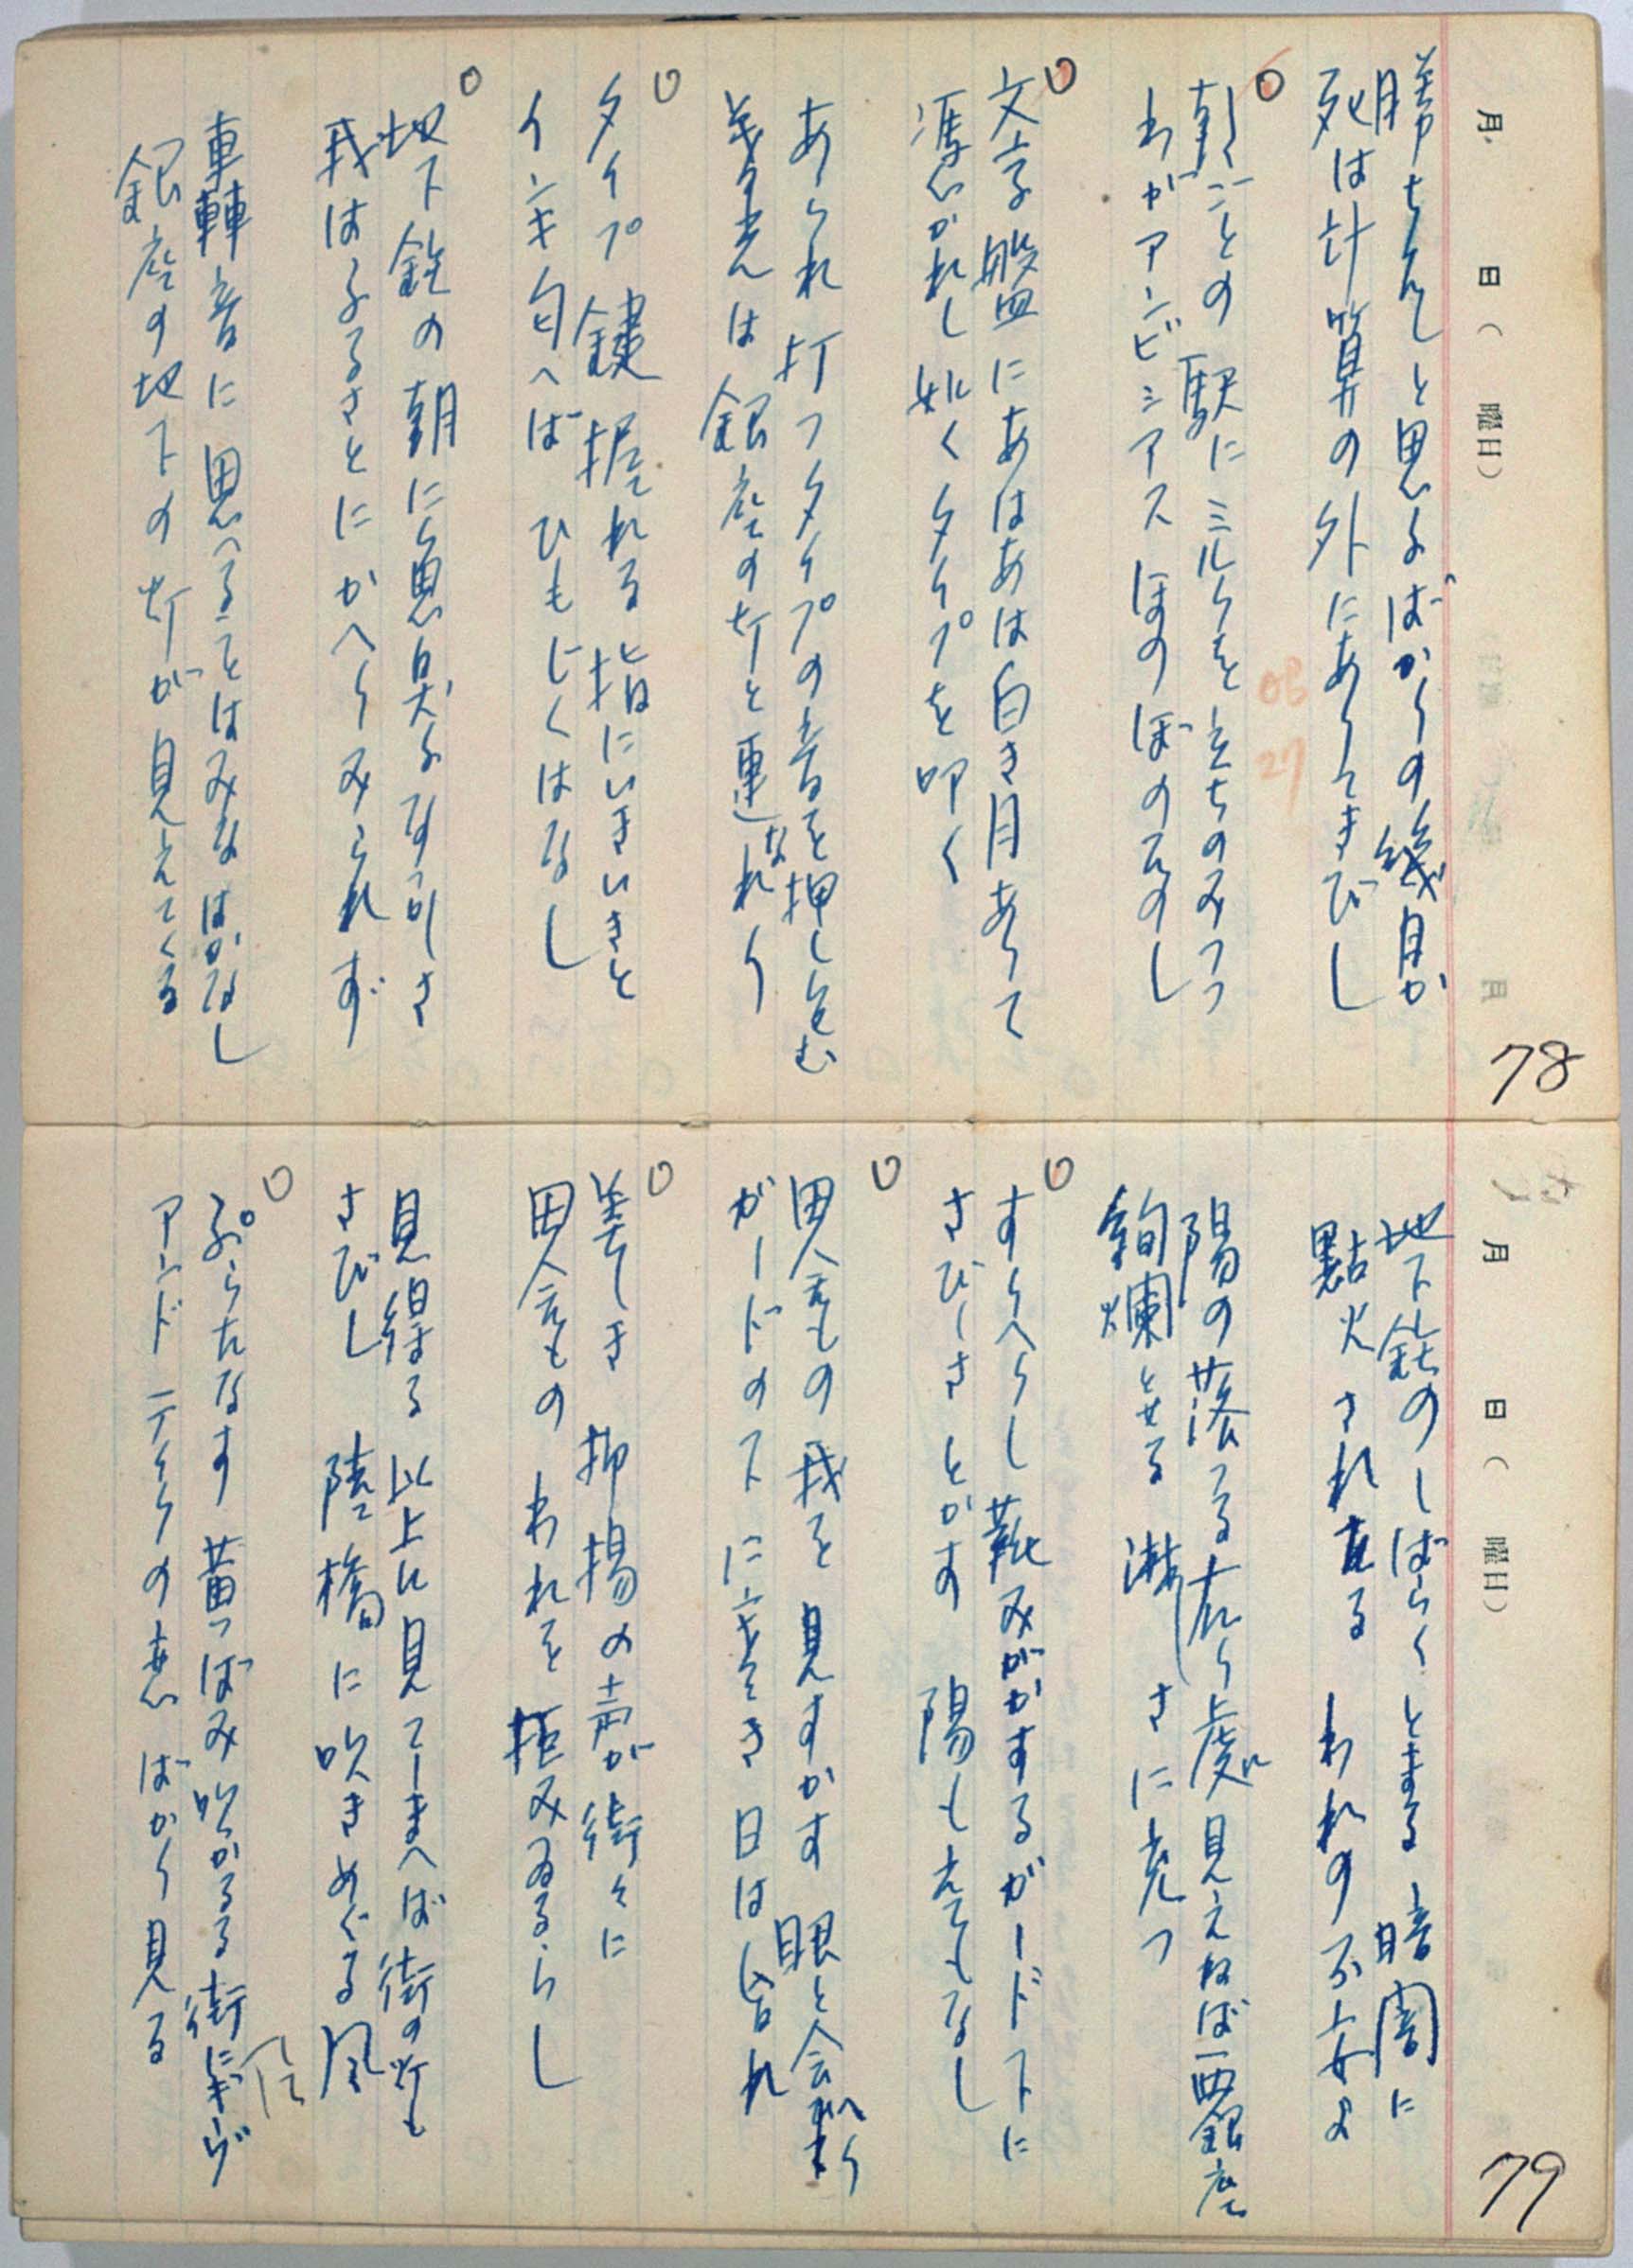 月 日( 曜日)
78
勝ちえしと思ふばかりの幾月か
死は計算の外にありてきびし
○
朝ごとの駅にミルクを立ちのみつつ
わがアンビシアスほのぼのたのし
○
文字盤にあはあはと白き月ありて
憑かれし如くタイプを叩く
あられ打つタイプの音を押し包む
は銀座の灯と連なれり
○
タイプ鍵握れる指にいきいきと
インキ匂へばひもじくはなし
○
地下鉄の朝に臭ふなつかしさ
我はふるさとにかへりみられず
車轉音に思へることはみなはかなし
銀座の地下の灯が見えてくる
月 日( 曜日)
79
地下鉄のしばらくとまる暗闇に
點火されたる われの不安よ
陽の落つる在り処見えねば西銀座
絢爛とせる 淋しさに充つ
○
すりへりし靴みがかするガード下に
さびしさとかす 陽もえてもなし
○
田舎もの我を見すかす眼と会へり
ガードの下に寒き日は昏れ
○
美しき抑揚の声が街々に
田舎ものわれを拒みゐるらし
見得る以上に見てしまへば街の灯も
さびし 陸橋に吹きめぐる風
○
ぷらたなす黄ばみ吹かるる街にギヴ
アンドテイクの恋ばかり見る